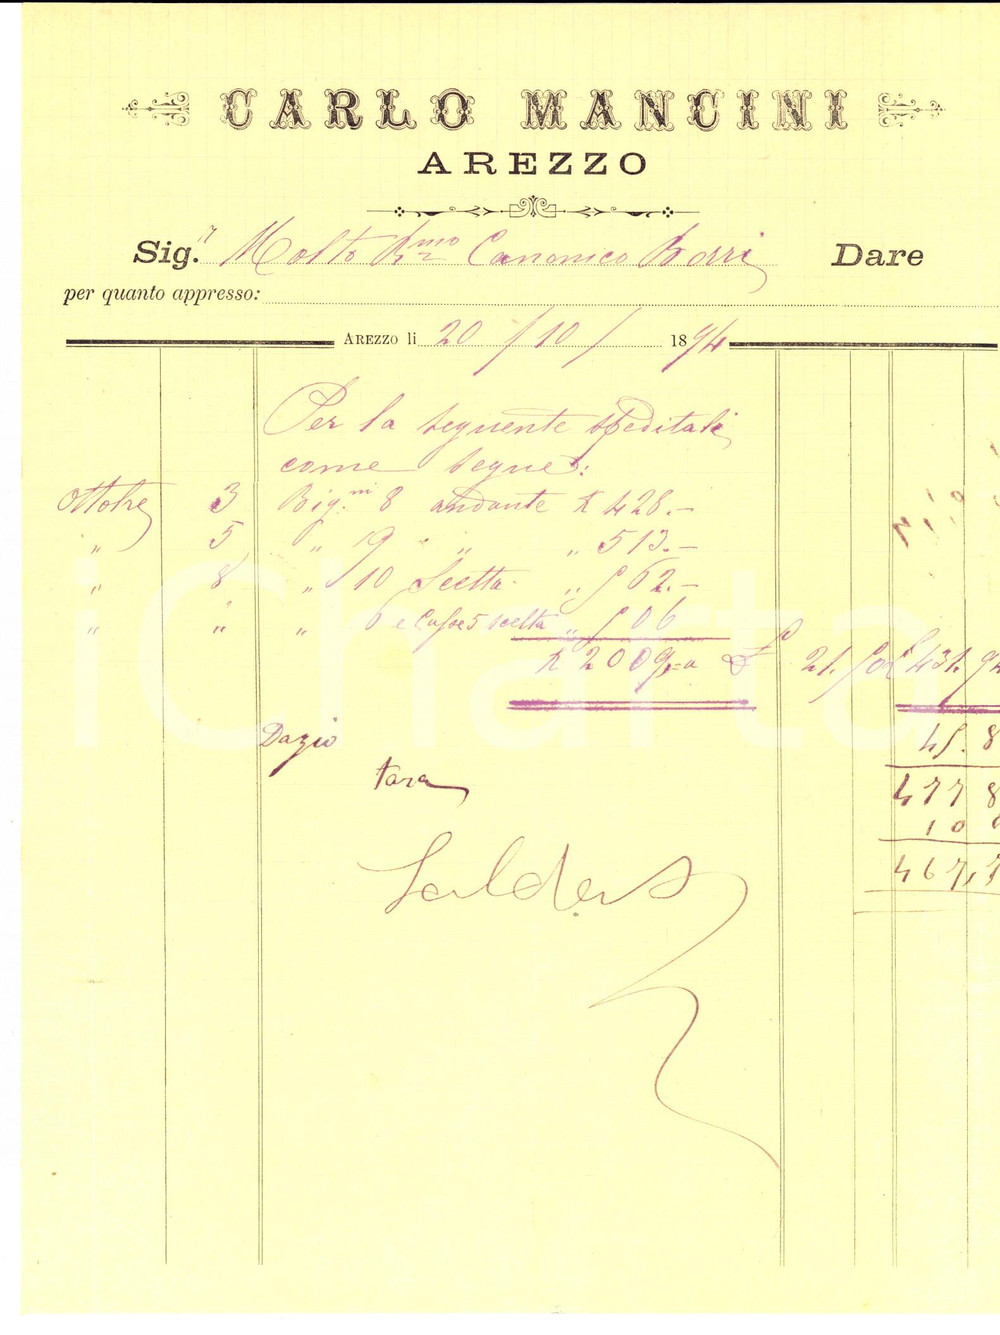 CARLO MANCINI
AREZZO
Sig.r Molto Rmo Canonico Borri Dare
per quanto appresso:
AREZZO li 20 / 10 / 1894
Per la seguente
come segue:
Ottobre 3 Big.ni 8 andante K 428.-
" 5 " 9 " " " 513.-
" 8 " 10 Scelta " 562.-
" " " 6 e Casse 5 scelta " 506
K 2009,= a £ 21.50 £ 431.94
Dazio 45.8
tara 477 8
10
467,
iCharta